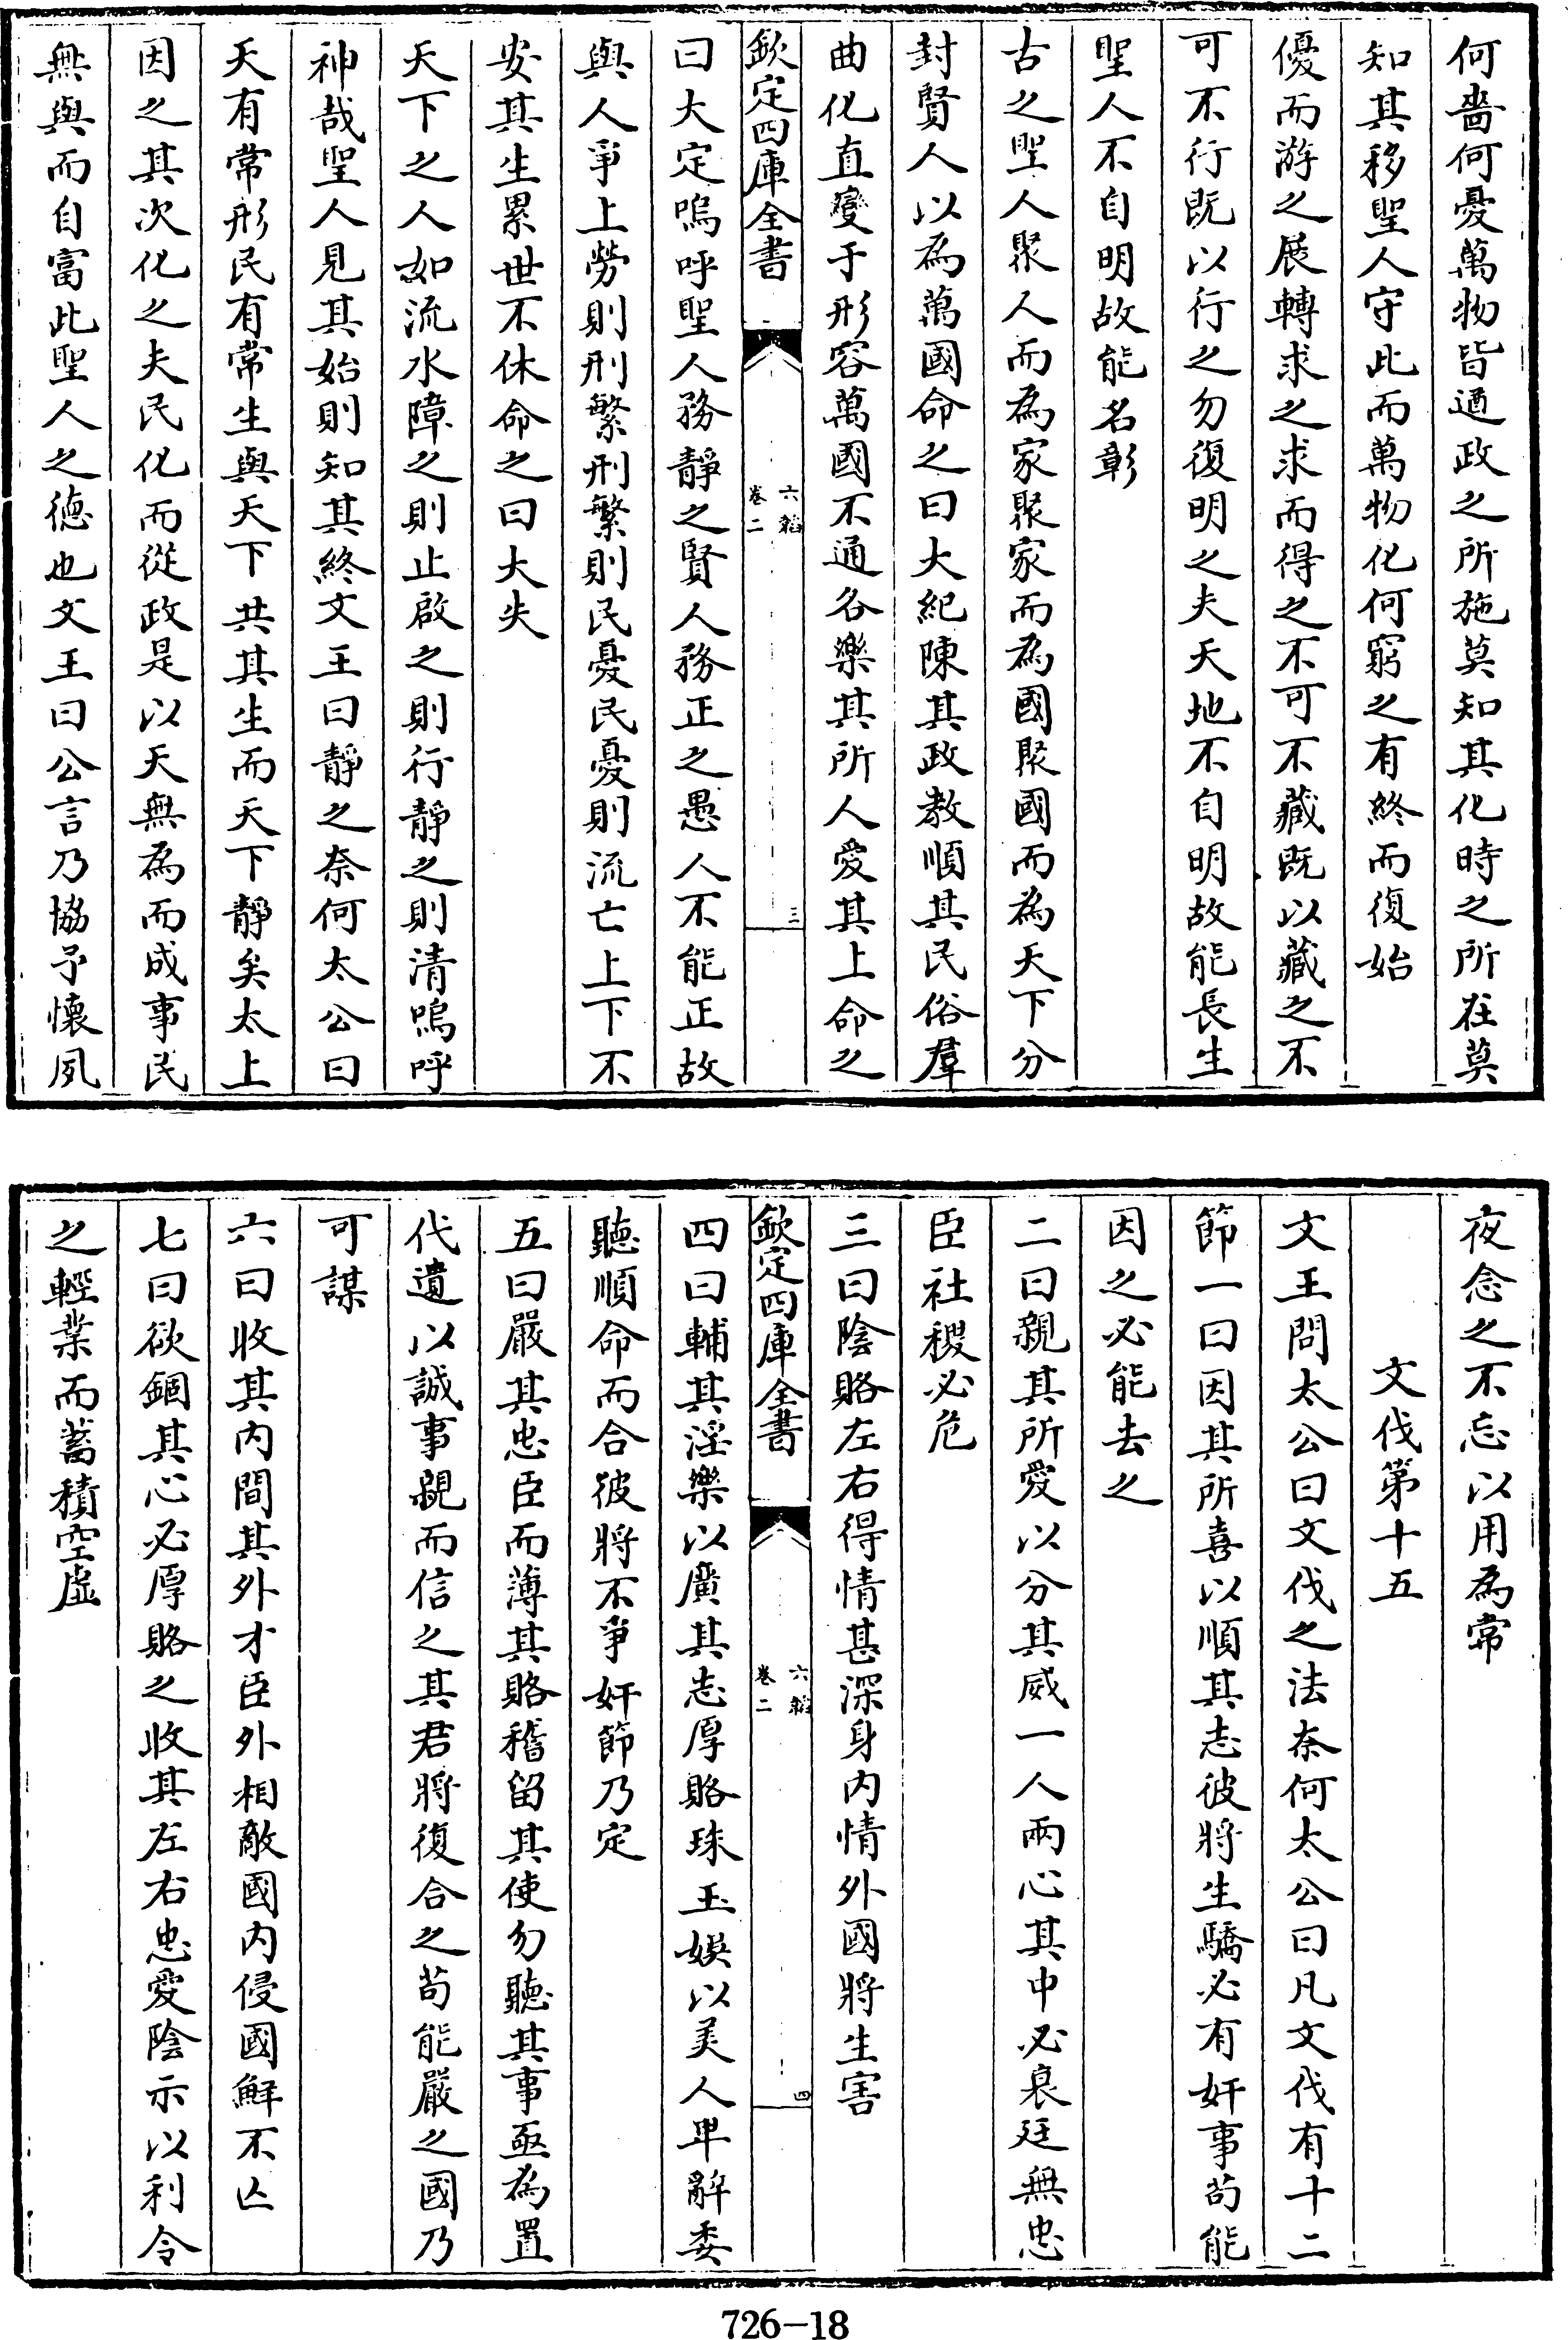 何嗇何憂萬物皆遒政之所施莫知其化時之所在莫
知其移聖人守此而萬物化何窮之有終而復始
優而游之展轉求之求而得之不可不藏既以藏之不
可不行既以行之勿復明之夫天地不自明故能長生
聖人不自明故能名彰
古之聖人聚人而為家聚家而為國聚國而為天下分
封賢人以為萬國命之曰大紀陳其政教順其民俗羣
曲化直變于形容萬國不通各樂其所人愛其上命之
欽定四庫全書
六韜
卷二
三
曰大定嗚呼聖人務靜之賢人務正之愚人不能正故
與人爭上勞則刑繁刑繁則民憂民憂則流亡上下不
安其生累世不休命之曰大失
天下之人如流水障之則止啟之則行靜之則清嗚呼
神哉聖人見其始則知其終文王曰靜之奈何太公曰
天有常形民有常生與天下共其生而天下靜矣太上
因之其次化之夫民化而從政是以天無為而成事民
無與而自富此聖人之德也文王曰公言乃協予懷夙
夜念之不忘以用為常
文伐第十五
文王問太公曰文伐之法奈何太公曰凡文伐有十二
節一曰因其所喜以順其志彼將生驕必有奸事苟能
因之必能去之
二曰親其所愛以分其威一人兩心其中必衰廷無忠
臣社稷必危
三曰陰賂左右得情甚深身內情外國將生害
欽定四庫全書
六韜
卷二
四
四曰輔其淫樂以廣其志厚賂珠玉娛以美人卑辭委
聽順命而合彼將不爭奸節乃定
五曰嚴其忠臣而薄其賂稽留其使勿聽其事亟為置
代遺以誠事親而信之其君將復合之苟能嚴之國乃
可謀
六曰收其內間其外才臣外相敵國內侵國鮮不亡
七曰欲錮其心必厚賂之收其左右忠愛陰示以利令
之輕業而蓄積空虛
726-18